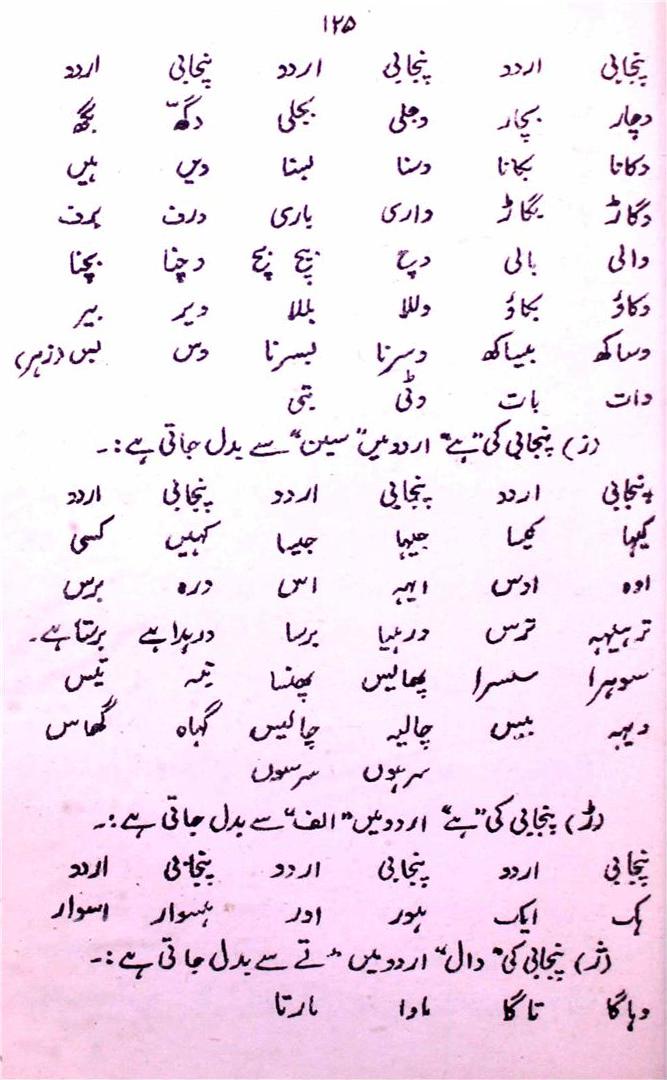 ۱۲۵
پنجابی اردو پنجابی اردو پنجابی اردو
دچار بچار دجلی بجلی دگھّ بگھ
دکانا بکانا دسنا بسنا دیں ہیں
دگاڑ بگاڑ داری باری درف برف
دالی بالی دیچ بیچ دچنا بچنا
دکاؤ بکاؤ دللا بللا دیر بیر
دساکھ بیساکھ دسرنا بسرنا دس بس (زہر)
دات بات دتی بتی
(ز) پنجابی کی "ہے" اردو میں "سین" سے بدل جاتی ہے:۔
پنجابی اردو پنجابی اردو پنجابی اردو
کیہا کیسا جیہا جیسا کہیں کسی
اوہ اوس ایہہ اس درہ برس
ترہیہہ ترس درہیا برسا درہدا ہے برستا ہے۔
سوہرا سسرا پھالیس پھنسا تیہ تیس
دیہہ بیس چالیہ چالیس گہاہ گھاس
سرہوں سرسوں
(ڑ) پنجابی کی "ہے" اردو میں "الف" سے بدل جاتی ہے:۔
پنجابی اردو پنجابی اردو پنجابی اردو
ہک ایک ہور اور ہسوار اسوار
(ژ) پنجابی کی "دال" اردو میں "تے سے بدل جاتی ہے:۔
دہاگا تاگا ماردا مارتا